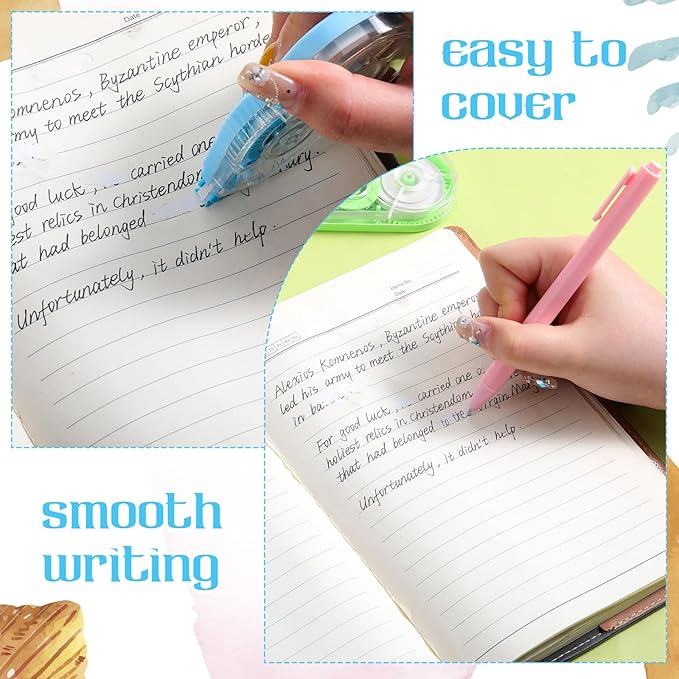 Date
Komnenos, Byzantine emperor,
army to meet the Scythian horde
good luck, carried one
holiest relics in Christendom
that had belonged
Unfortunately, it didn't help.
easy to
cover
Memo No.
Date
Alexios Komnenos, Byzantine emperor,
led his army to meet the Scythian
in
For good luck, ... carried one
holiest relics in Christendom
that had belonged to the Virgin Mary
Unfortunately, it didn't help.
smooth
writing